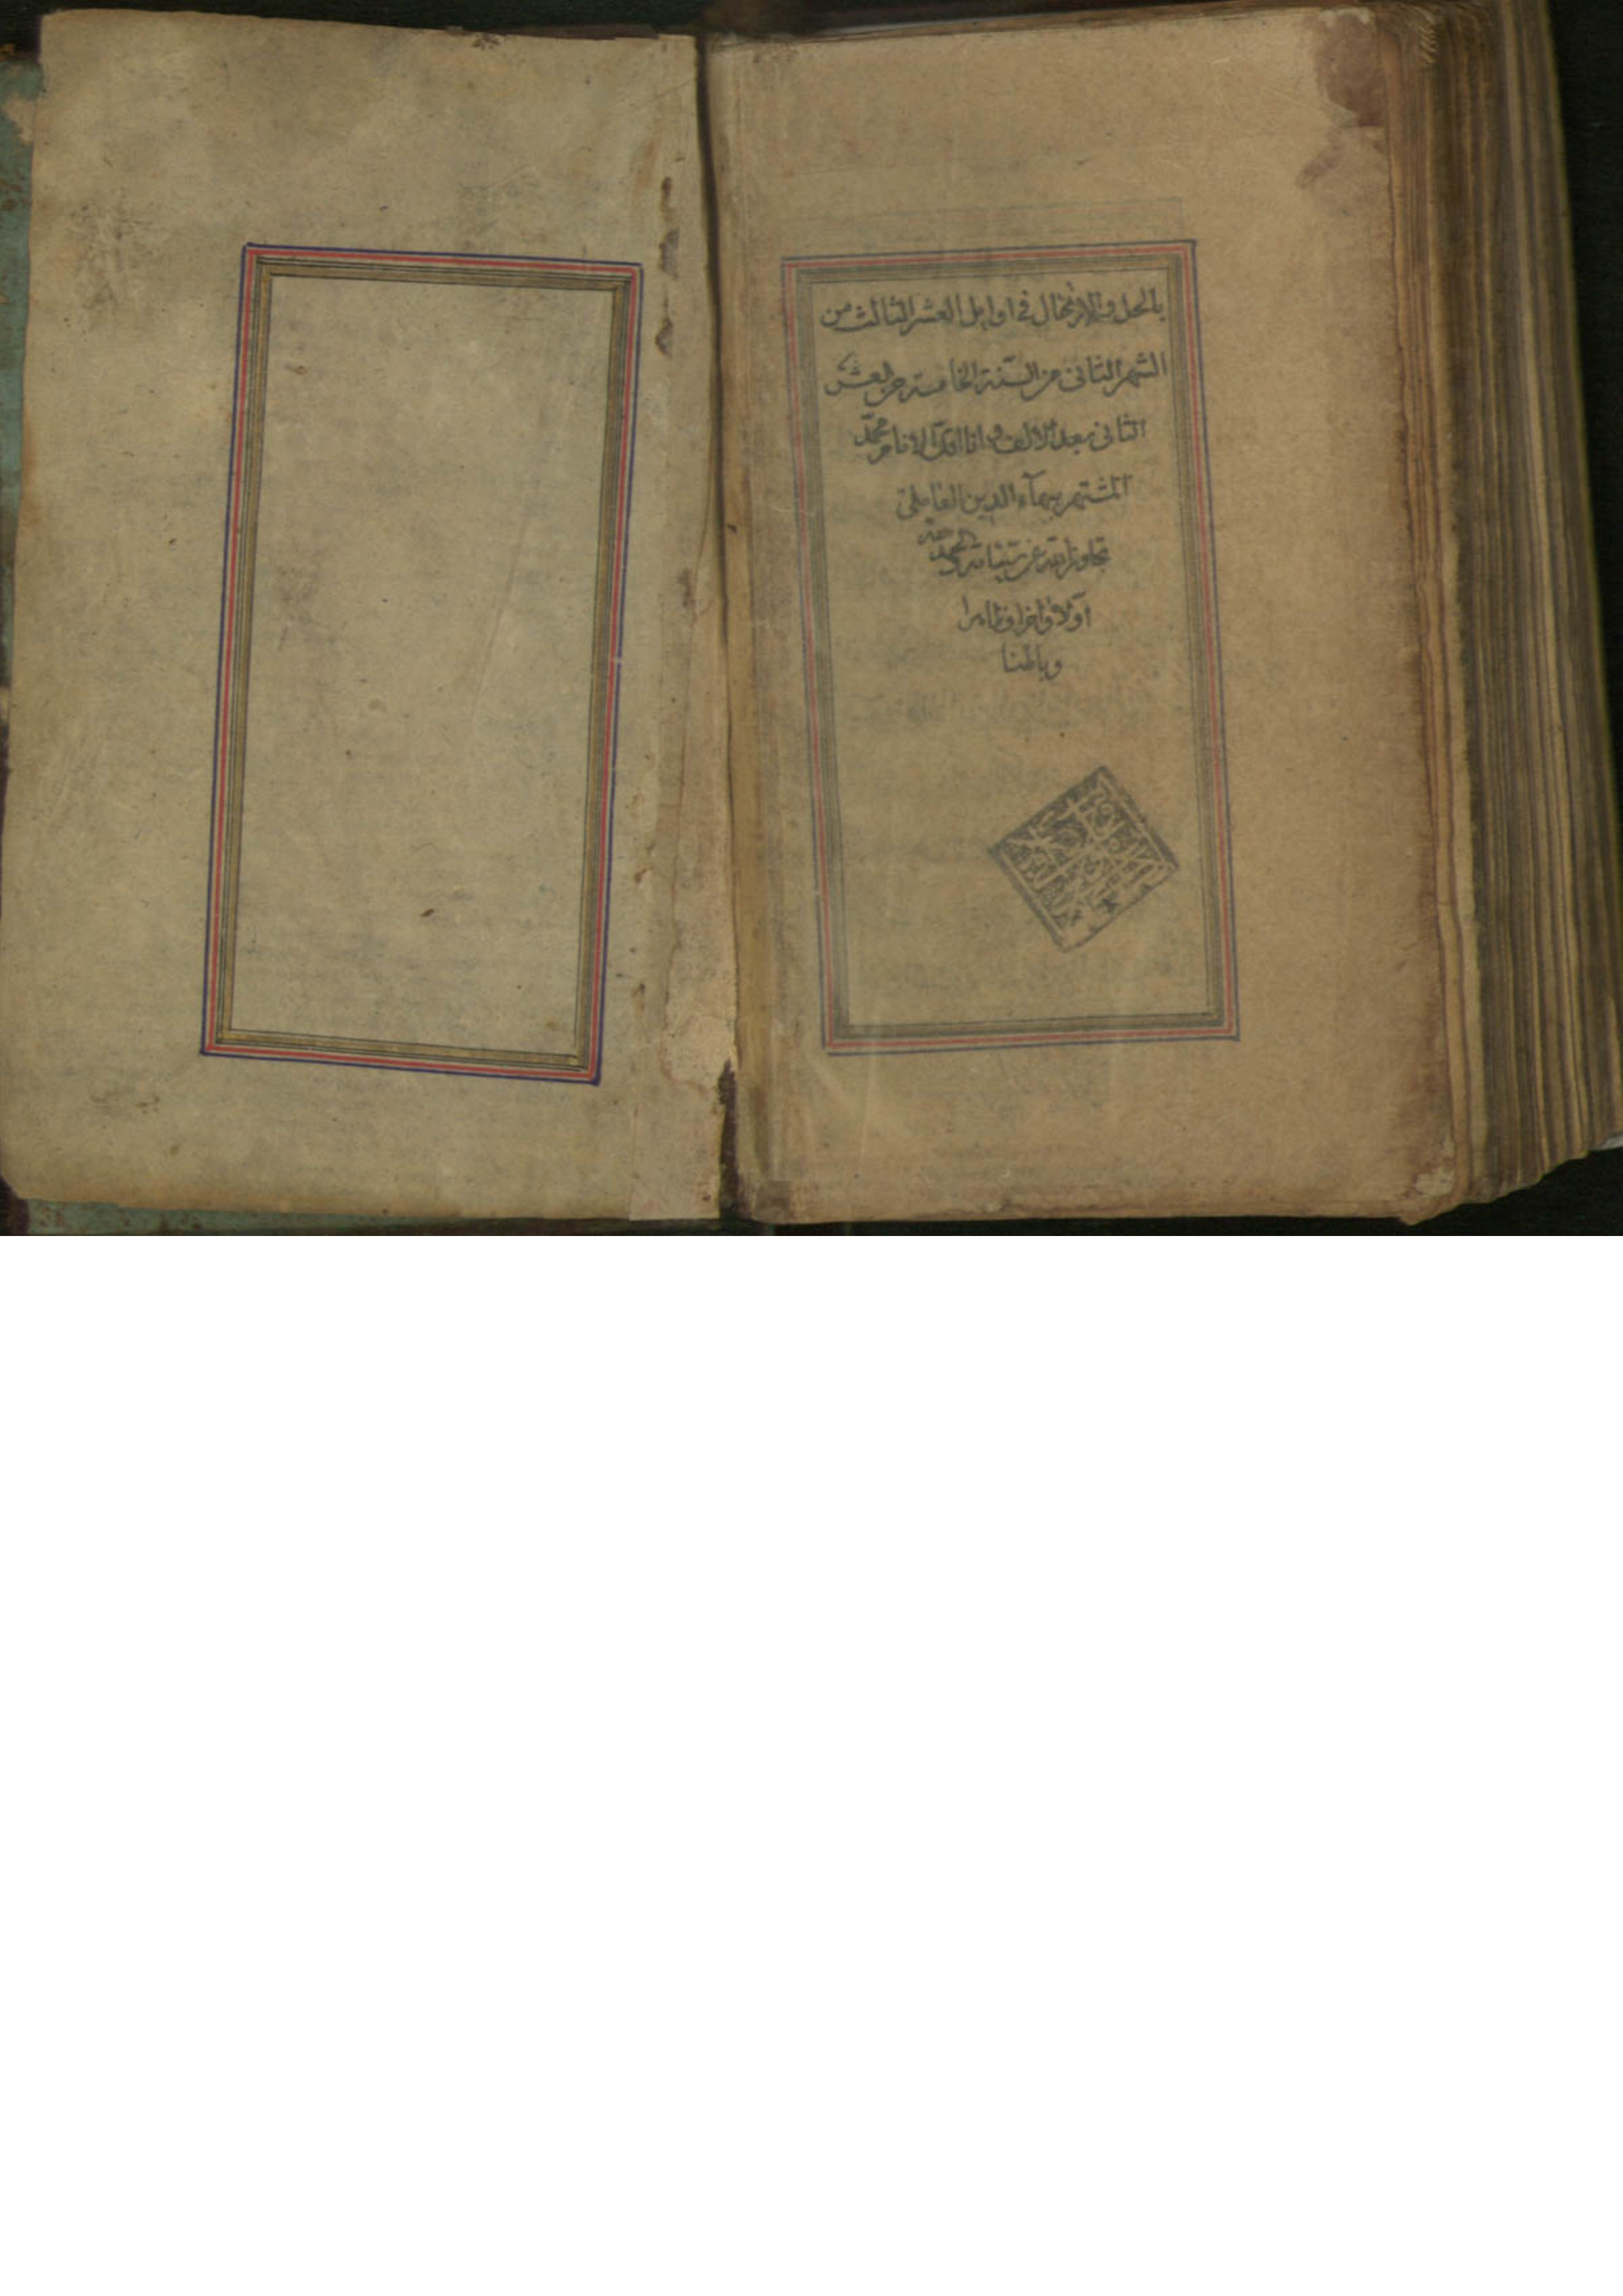 بالحل والارتحال في اوايل العشر الثالث من
الشهر الثاني من السنة الخامسة من العشر
الثاني بعد الالف وانا اقل الانام محمد
المشتهر ببهاء الدين العاملي
تجاوز الله عن سيئاته والحمد لله
اولا واخرا وظاهرا
وباطنا